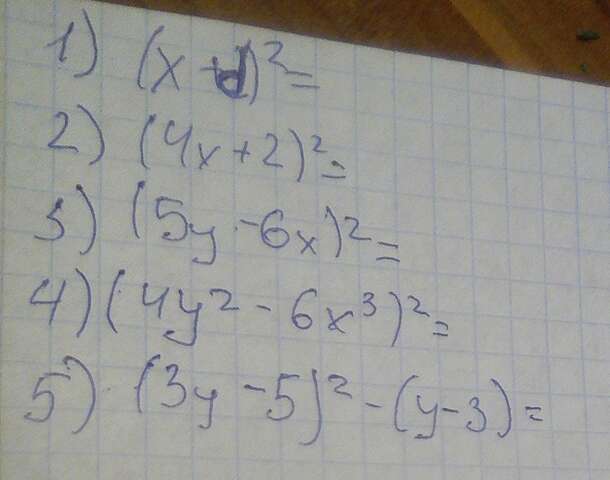 1) (x + d)² =
2) (4x + 2)² =
3) (5y - 6x)² =
4) (4y² - 6x³)² =
5) (3y - 5)² - (y - 3) =